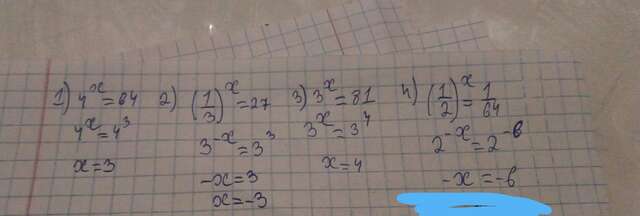 1) 4^x = 64 2) (1/3)^x = 27 3) 3^x = 81 4) (1/2)^x = 1/64
4^x = 4^3 3^-x = 3^3 3^x = 3^4 2^-x = 2^-6
x = 3 -x = 3 x = 4 -x = -6
x = -3